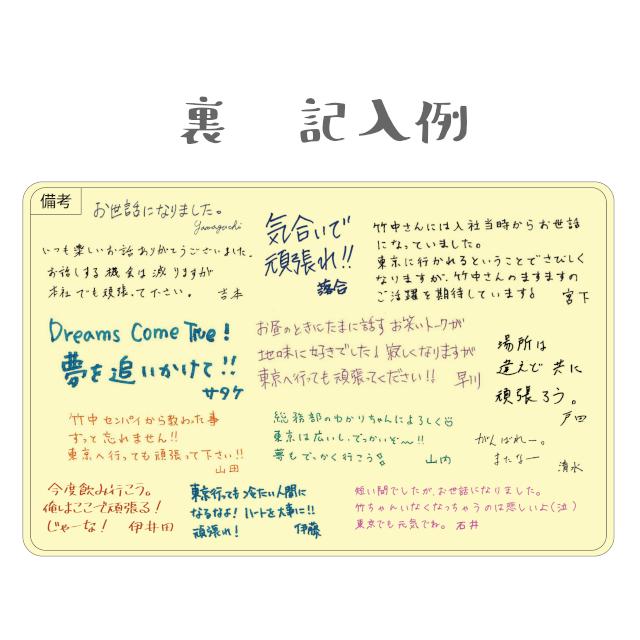 裏 記入例
備考
お世話になりました。
Yamaguchi
いつも楽しいお話ありがとうございました。
お話しする機会は減りますが
本社でも頑張って下さい。 吉本
気合いで
頑張れ!!
落合
竹中さんには入社当時からお世話
になっていました。
東京に行かれるということでさびしく
なりますが、竹中さんのますますの
ご活躍を期待しています! 宮下
Dreams Come True!
夢を追いかけて!!
サタケ
お昼のときにたまに話すお笑いトークが
地味に好きでした! 寂しくなりますが
東京へ行っても頑張ってください!! 早川
場所は
違えど共に
頑張ろう。
戸田
竹中センパイから教わった事
ずって忘れません!!
東京へ行っても頑張って下さい!!
山田
総務部のゆかりちゃんによろしく
東京は広いし、でっかいぞ〜!!
夢もでっかく行こう! 山内
がんばれー。
またなー
清水
今度飲み行こう。
俺はここで頑張る!
じゃーな! 伊井田
東京行っても冷たい人間に
なるなよ! ハートを大事に!!
頑張れ! 伊藤
短い間でしたが、お世話になりました。
竹ちゃんいなくなっちゃうのは悲しいよ(泣)
東京でも元気でね。 石井